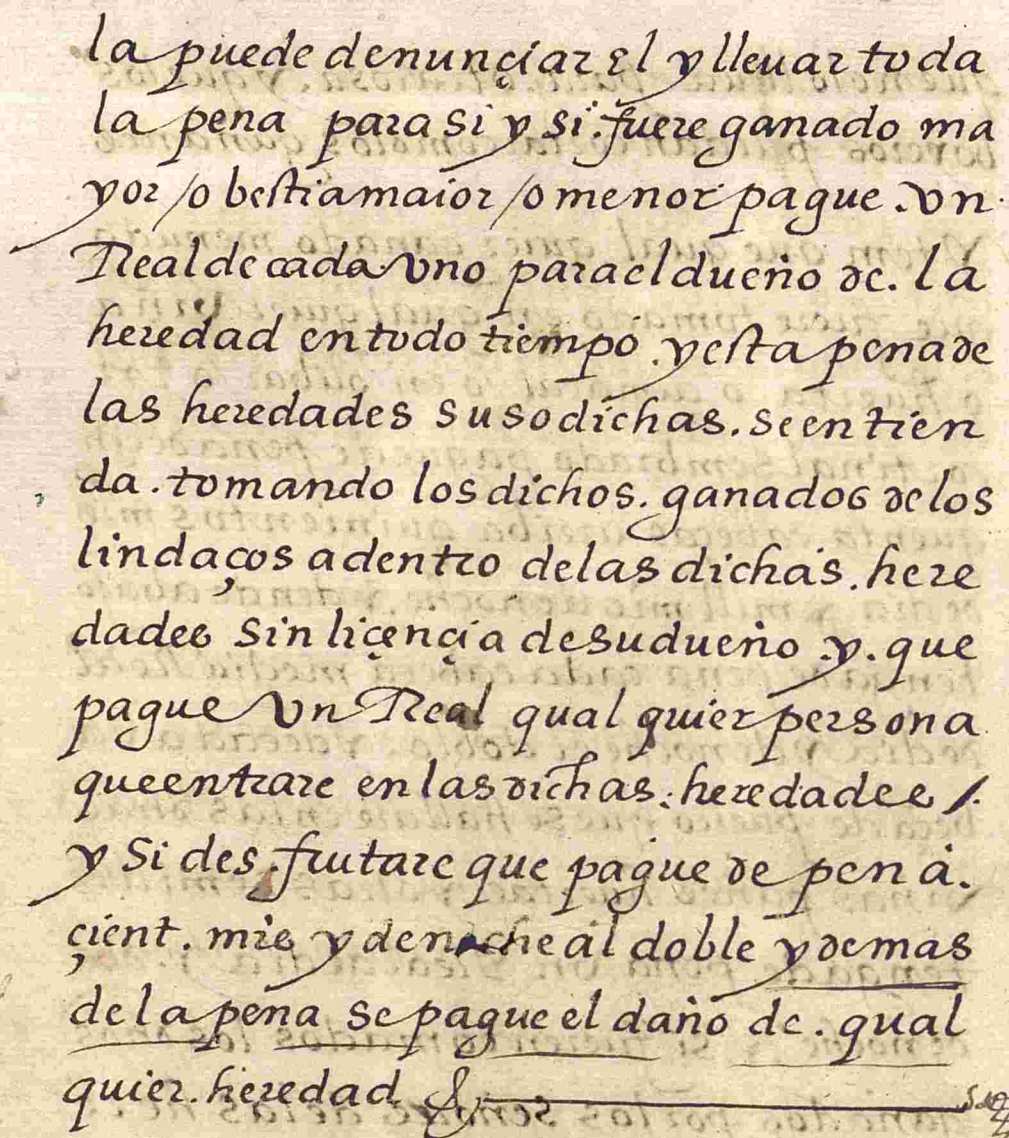 la puede denunçiar el y lleuar toda
la pena para si y si. fuere ganado ma
yor /o bestia maior /o menor pague. vn
Real de cada vno para el dueño de. la
heredad en todo tiempo. y esta pena de
las heredades susodichas. se entien
da. tomando los dichos. ganados de los
lindaços adentro de las dichas. here
dades sin liçençia de su dueño. y. que
pague vn Real qual quier persona
que entrare en las dichas. heredades /.
y si des. frutare que pague de pena.
çient. mrs y de noche al doble y demas
de la pena se pague el daño de. qual
quier. heredad &